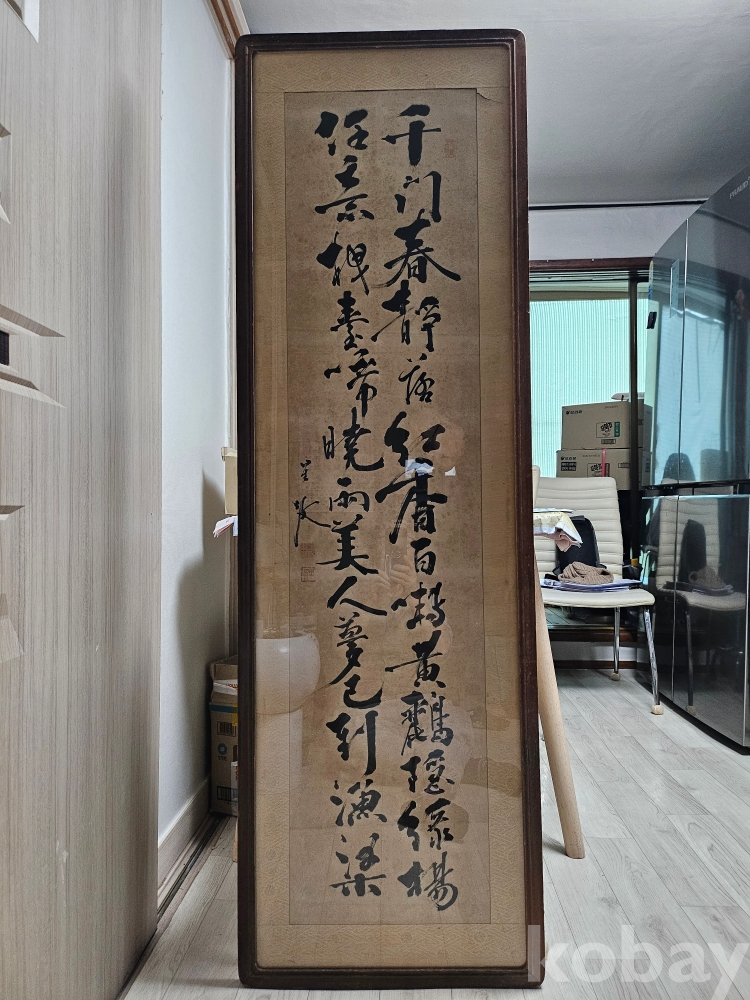 千门春靜落紅香百囀黃鸝隱綠楊
任意樓臺啼曉雨美人夢已到漁梁
kobay